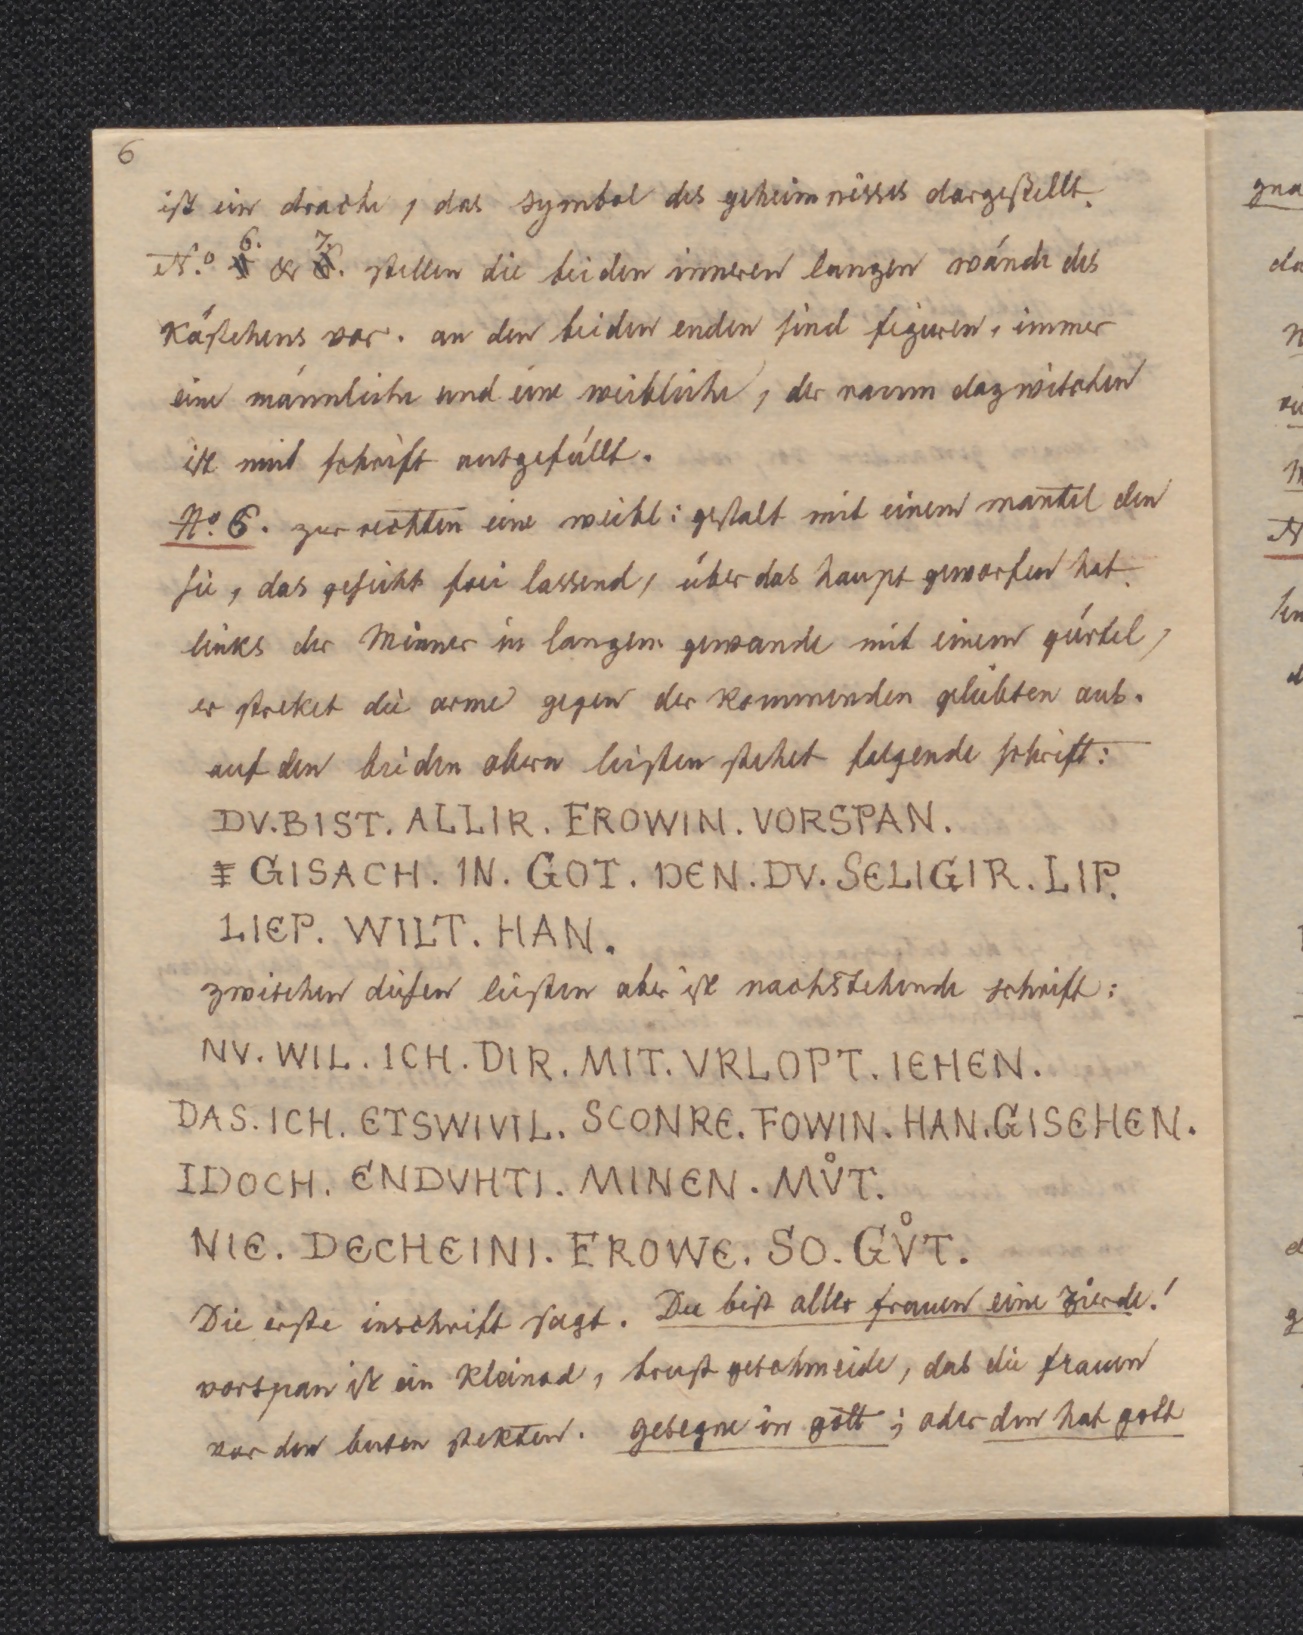 6
ist ein drache, das symbol des geheimnisses dargestellt.
N.º 6. & 7. stellen die beiden inneren langen wände des
kästchens vor. an den beiden enden sind figuren, immer
eine männliche und eine weibliche, der raum dazwischen
ist mit schrift ausgefüllt.
Nº. 6. zur rechten eine weibl: gestalt mit einem mantel den
sie, das gesicht frei lassend, über das haupt geworfen hat.
links der Minner in langem gewande mit einem gürtel,
er streket die arme gegen der kommenden geliebten aus.
auf den beiden obern leisten stehet folgende schrift:
DV.BIST. ALLIR. FROWIN. VORSPAN.
GISACH. IN. GOT. DEN. DV. SELIGIR. LIP.
LIEP. WILT. HAN.
zwischen diesen leisten aber ist nachstehende schrift:
NV. WIL. ICH. DIR. MIT. VRLOPT. IEHEN.
DAS. ICH. ETSWIVIL. SCONRE. FOWIN. HAN. GISEHEN.
IDOCH. ENDVHTI. MINEN. MV̊T.
NIE. DECHEINI. FROWE. SO. GV̊T.
Die erste inschrift sagt. Du bist aller frauen eine zierde!
vorspan ist ein kleinod, brust geschmeide, das die frauen
vor den busen stekten. gesegne in gott; oder den hat gott
gna